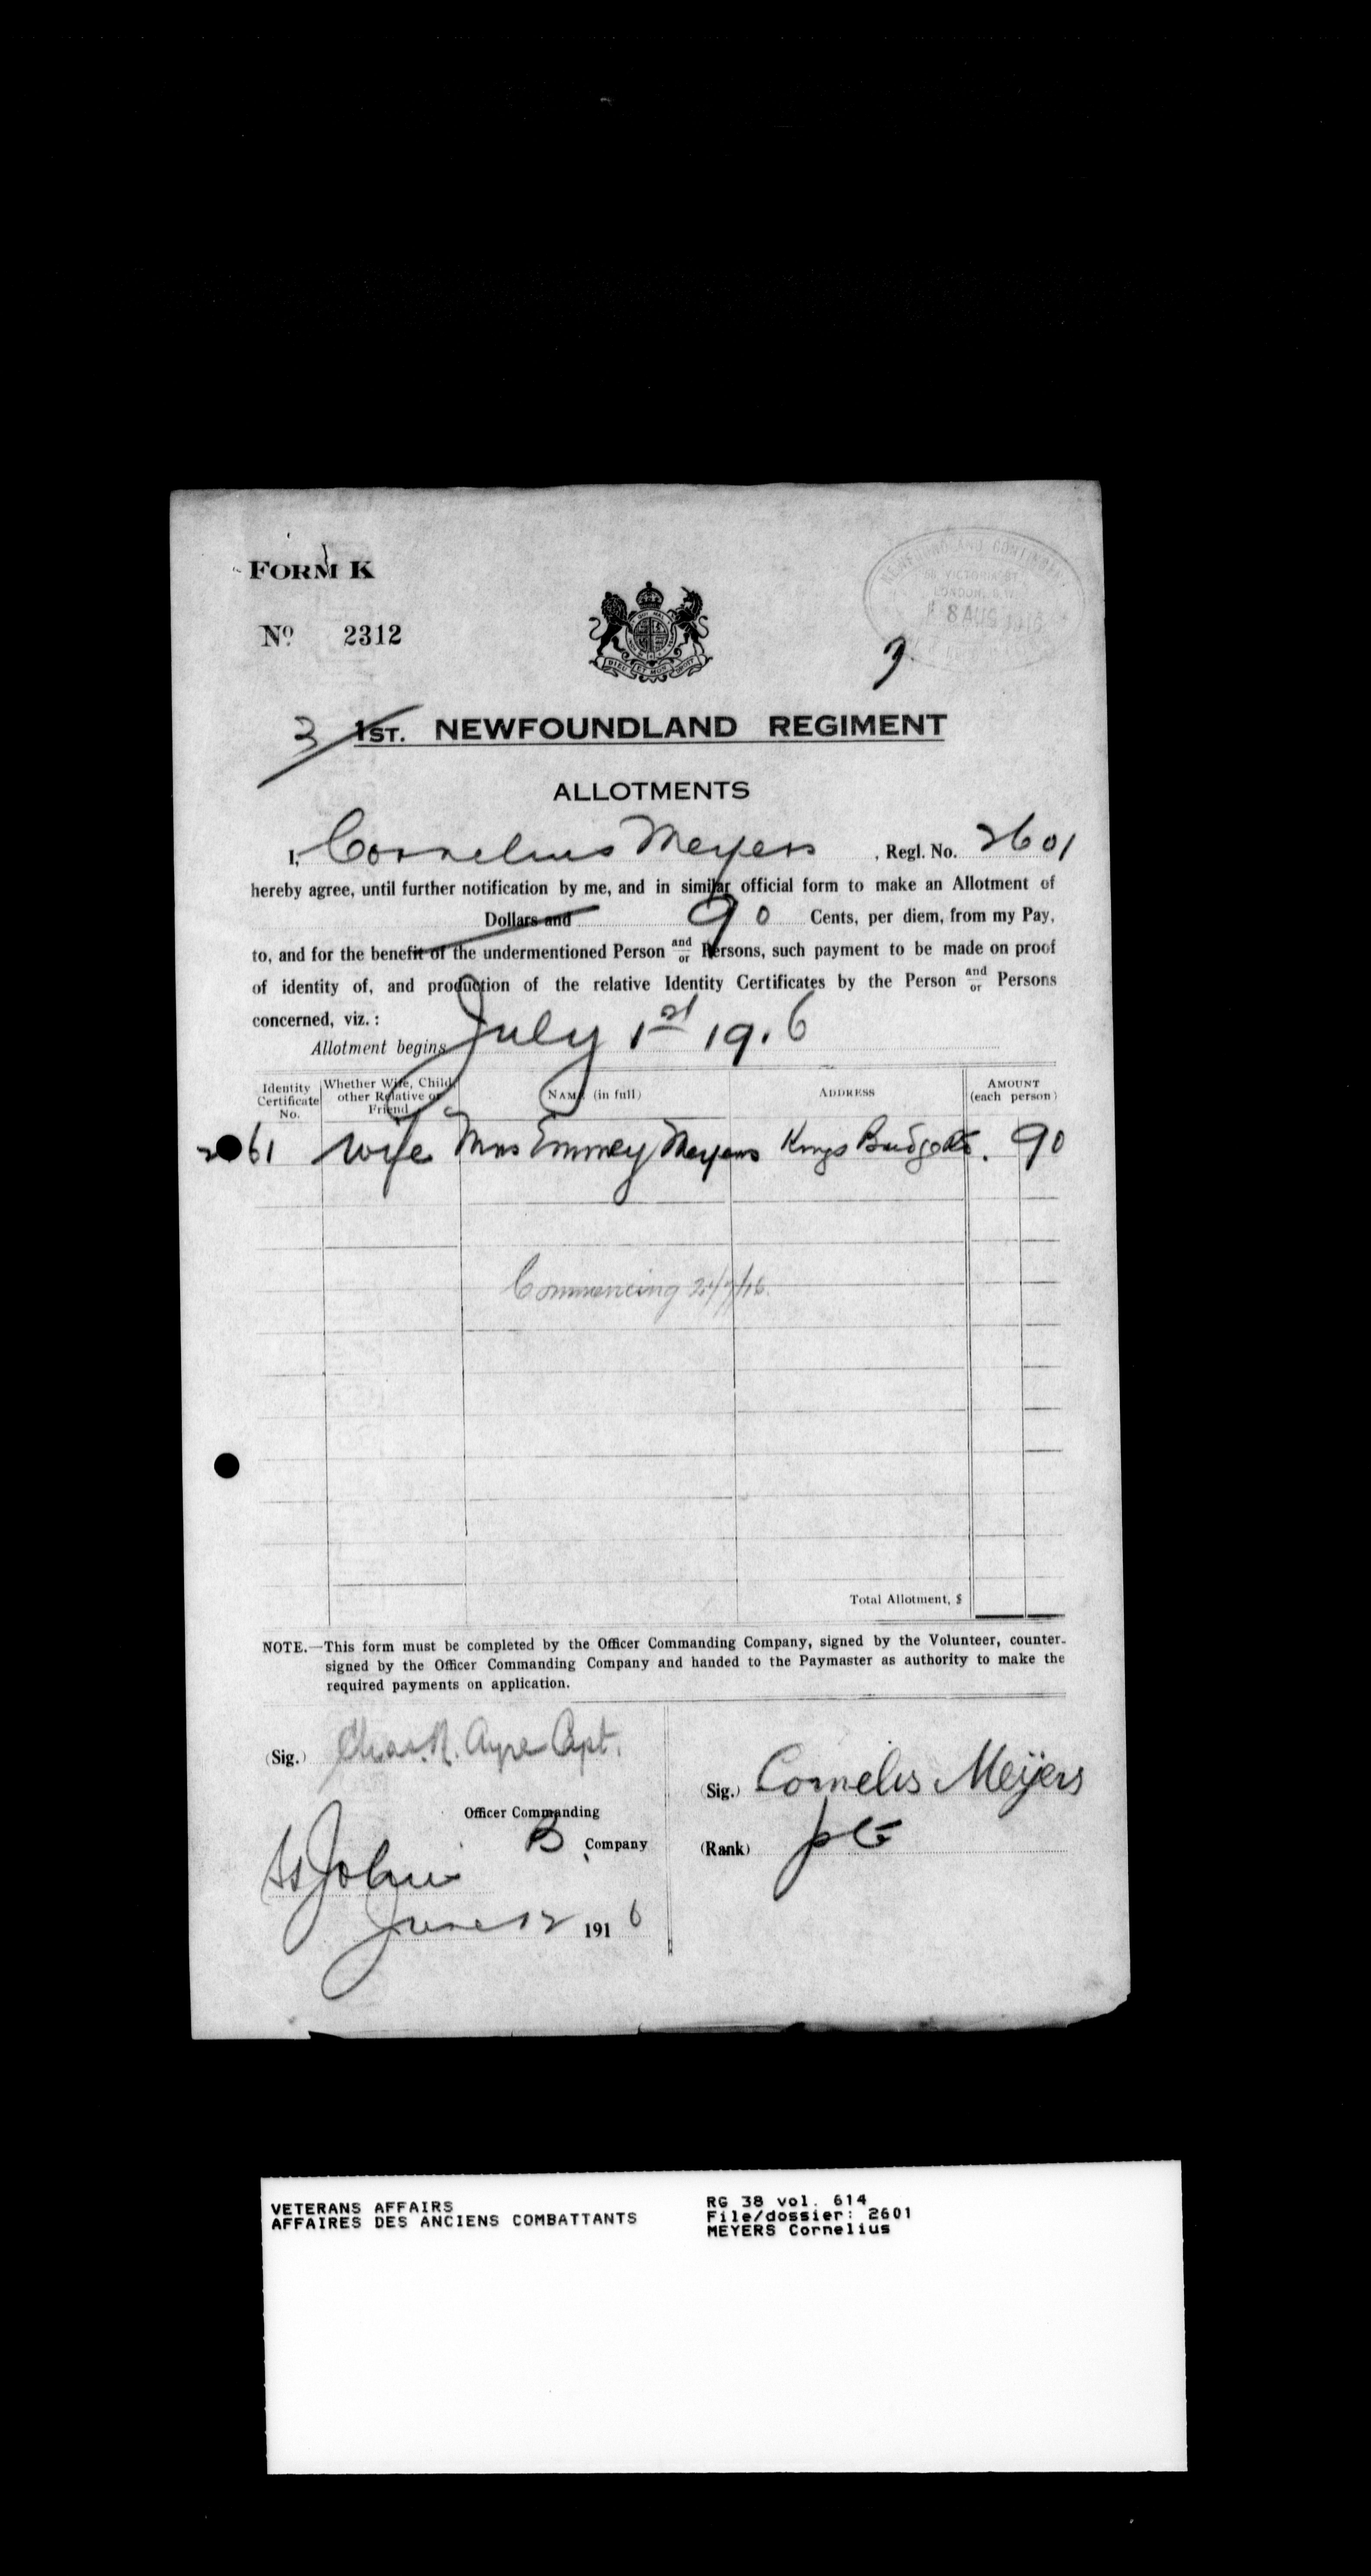 FORM K
NEWFOUNDLAND CONTINGENT
58 VICTORIA ST.
LONDON, S.W.
8 AUG 1916
Nº 2312
DIEU ET MON DROIT
3 1ST. NEWFOUNDLAND REGIMENT
ALLOTMENTS
I, Cornelius Meyers, Regl. No. 2601
hereby agree, until further notification by me, and in similar official form to make an Allotment of
Dollars and 90 Cents, per diem, from my Pay,
to, and for the benefit of the undermentioned Person and/or Persons, such payment to be made on proof
of identity of, and production of the relative Identity Certificates by the Person and/or Persons
concerned, viz.:
Allotment begins July 1st 1916
Identity Certificate No. Whether Wife, Child, other Relative or Friend NAME (in full) ADDRESS AMOUNT (each person)
61 wife Mrs Emmey Meyers Kings Bridge Rd. 90
Commencing
Total Allotment, $
NOTE.—This form must be completed by the Officer Commanding Company, signed by the Volunteer, counter-
signed by the Officer Commanding Company and handed to the Paymaster as authority to make the
required payments on application.
(Sig.) Chas. R. Ayre Capt.
Officer Commanding
B Company
St Johns
June 12 1916
(Sig.) Cornelis Meijers
(Rank) pte
VETERANS AFFAIRS
AFFAIRES DES ANCIENS COMBATTANTS
RG 38 vol. 614
File/dossier: 2601
MEYERS Cornelius